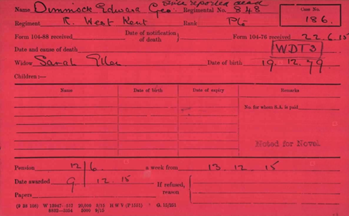 Since reported dead
Name Dimmick Edward Geo Regimental No. 848 Case No. 186.
Regiment R. West Kent Rank Pte
Form 104-88 received Date of notification of death Form 104-76 received 22.6.15
Date and cause of death WDT3/
Widow Sarah Ellen Date of birth 19.12.79
Children:—
Name Date of Birth Date of expiry Remarks
No. for whom S.A. is paid
Noted for Novel
Pension 12/6 a week from 13.12.15
Date awarded 9/12.15 If refused, reason
Papers